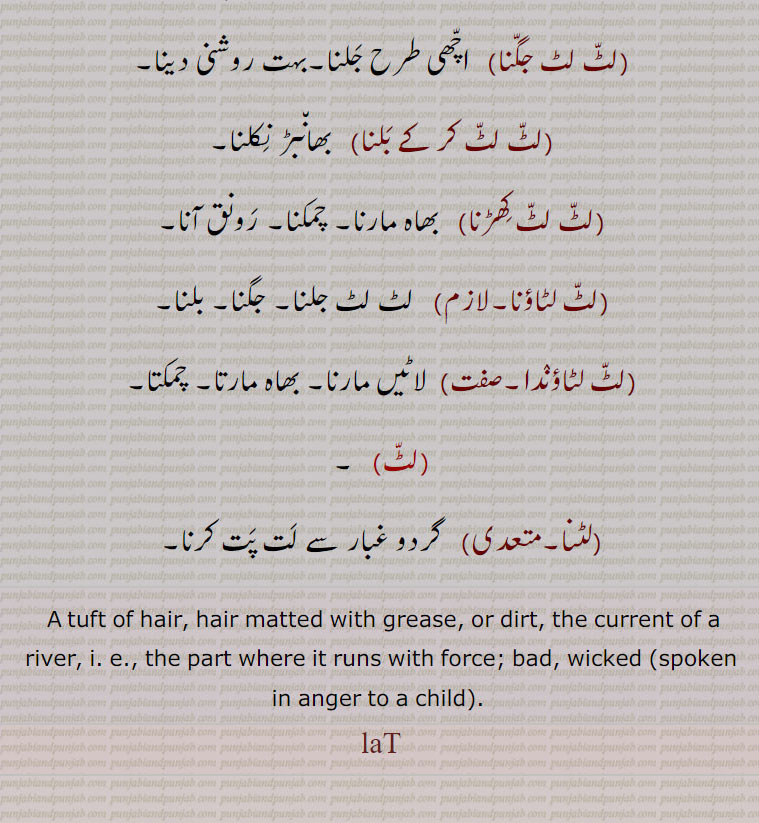 (لٹّ لٹ جگّنا) اچّھی طرح جَلنا۔بہت روشنی دینا۔
(لٹّ لٹّ کر کے بَلنا) بھانْبڑ نِکلنا۔
(لٹّ لٹّ کِھڑنا) بھاہ مارنا۔ چمکنا۔ رَونق آنا۔
(لٹّ لٹاؤنا۔لازم) لٹ لٹ جلنا۔ جگنا۔ بلنا۔
(لٹّ لٹاؤنْدا۔صفت) لاٹیں مارنا۔ بھاہ مارتا۔ چمکتا۔
(لٹّ) ۔
(لٹنا۔متعدی) گردو غبار سے لَت پَت کرنا۔
A tuft of hair, hair matted with grease, or dirt, the current of a
river, i. e., the part where it runs with force; bad, wicked (spoken
in anger to a child).
laT